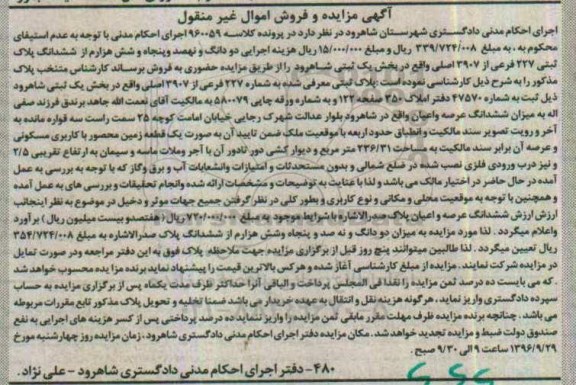 آگهی مزایده و فروش اموال غیر منقول
اجرای احکام مدنی دادگستری شهرستان شاهرود در نظر دارد در پرونده کلاسه ۹۶۰۰۵۹ اجرای احکام مدنی با توجه به عدم استیفای
محکوم به ، به مبلغ ۳۳۹/۷۲۴/۰۰۸ ریال و مبلغ ۱۵/۰۰۰/۰۰۰ ریال هزینه اجرایی دو دانگ و نهصد وپنجاه و شش هزارم از ششدانگ پلاک
ثبتی ۲۲۷ فرعی از ۳۹۰۷ اصلی واقع در بخش یک ثبتی شاهرود را از طریق مزایده حضوری به فروش برساند کارشناس منتخب پلاک
مذکور را به شرح ذیل کارشناسی نموده است .پلاک ثبتی معرفی شده به شماره ۲۲۷ فرعی از ۳۹۰۷ اصلی واقع در بخش یک ثبتی شاهرود
ذیل ثبت به شماره ۴۷۵۷۰ دفتر املاک ۳۵۰ صفحه ۱۲۲ و به شماره ورقه چاپی ۵۸۰۰۷۹ به مالکیت آقای نعمت الله جاهد برندق فرزند صفی
اله به میزان ششدانگ عرصه واعیان واقع در شاهرود بلوار عدالت شهرک رجایی خیابان امامت کوچه ۲۵ سمت راست سه قواره مانده به
آخر و رویت تصویر سند مالکیت و انطباق حدود اربعه با موقعیت ملک ضمن تایید آن به صورت یک قطعه زمین محصور با کاربری مسکونی
و عرصه آن برابر سند مالکیت به مساحت ۲۳۶/۳۱ متر مربع و دیوار کشی دور تادور آن با آجر وملات ماسه و سیمان به ارتفاع تقریبی ۲/۵
و نیز درب ورودی فلزی نصب شده در ضلع شمالی و بدون مستحدثات و امتیازات وانشعابات آب و برق وگاز که با توجه به بررسی به عمل
آمده در حال حاضر در اختیار مالک می باشد و لذا با عنایت به توضیحات و مشخصات ارائه شده وانجام تحقیقات و بررسی های به عمل آمده
و همچنین با توجه به موقعیت محلی و مکانی و نوع کاربری و بطور کلی در نظر گرفتن جمیع جهات موثر و دخیل در موضوع به نظر اینجانب
ارزش ششدانگ عرصه و اعیان پلاک صدرالاشاره با شرایط موجود به مبلغ ۷۲۰/۰۰۰/۰۰۰ ریال ( هفتصدو بیست میلیون ریال ) برآورد
واعلام میگردد . لذا مورد مزایده به میزان دو دانگ و نه صد و پنجاه وشش هزارم از ششدانگ پلاک صدرالاشاره به مبلغ ۳۵۴/۷۲۴/۰۰۸
ریال تعیین میگردد . لذا طالبین میتوانند پنج روز قبل از برگزاری مزایده جهت ملاحظه پلاک فوق به این دفتر مراجعه ودر صورت تمایل
در مزایده شرکت نمایند . مزایده از مبلغ کارشناسی آغاز شده و هرکس بالاترین قیمت را پیشنهاد نماید برنده مزایده محسوب خواهد شد
. که می بایست ده درصد ثمن مزایده را نقدا فی المجلس پرداخت و الباقی آنرا حداکثر ظرف مدت یکماه پس از برگزاری مزایده به حساب
سپرده دادگستری واریز نماید . هرگونه هزینه نقل و انتقال به عهده خریدار می باشد ضمنا تخلیه و تحویل پلاک مذکور تابع مقررات مربوطه
می باشد . چنانچه برنده مزایده ظرف مهلت مقرر مابقی ثمن مزایده را واریز ننماید ده درصد پرداختی پس از کسر هزینه های اجرایی به نفع
صندوق دولت ضبط و مزایده تجدید خواهد شد. مکان مزایده دفتر اجرای احکام مدنی دادگستری شاهرود، زمان مزایده روز چهارشنبه مورخ
۱۳۹۶/۹/۲۹ ساعت ۹ الی ۹/۳۰ صبح .
۴۸۰- دفتر اجرای احکام مدنی دادگستری شاهرود - علی نژاد.